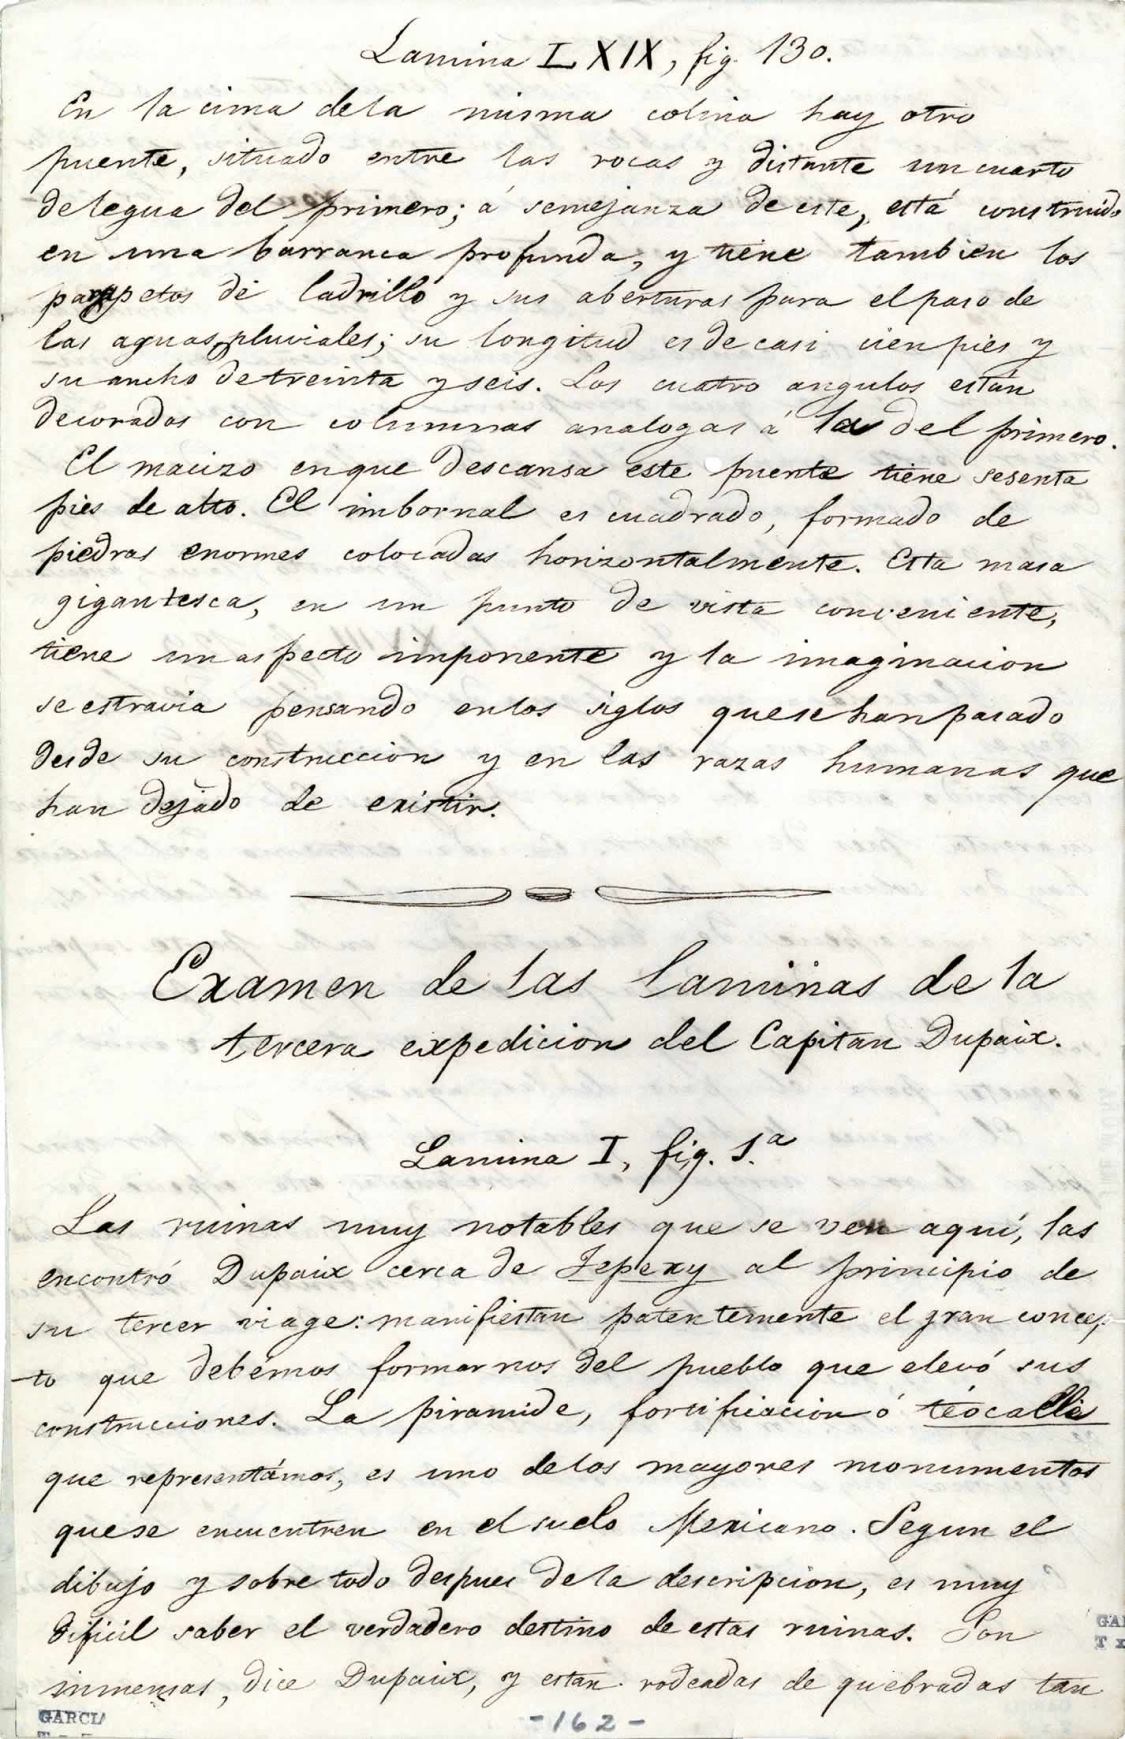 Lamina LXIX, fig. 130.
En la cima de la misma colina hay otro
puente, situado entre las rocas y distante un cuarto
de legua del primero; á semejanza de este, está construido
en una barranca profunda, y tiene tambien los
parapetos de ladrillo y sus aberturas para el paso de
las aguas pluviales; su longitud es de casi cien pies y
su ancho de treinta y seis. Los cuatro angulos están
decorados con columnas analogas á las del primero.
El macizo en que descansa este puente tiene sesenta
pies de alto. El imbornal es cuadrado, formado de
piedras enormes colocadas horizontalmente. Esta masa
gigantesca, en un punto de vista conveniente,
tiene un aspecto imponente y la imaginacion
se estravia pensando en los siglos que se han pasado
desde su construccion y en las razas humanas que
han dejado de existir.
Examen de las laminas de la
tercera expedicion del Capitan Dupaix.
Lamina I, fig. 1.ª
Las ruinas muy notables que se ven aquí, las
encontró Dupaix cerca de Tepexy al principio de
su tercer viage: manifiestan patentemente el gran concep-
-to que debémos formarnos del pueblo que elevó sus
construcciones. La piramide, fortificacion ó teócalli
que representámos, es uno de los mayores monumentos
que se encuentren en el suelo Mexicano. Segun el
dibujo y sobre todo despues de la descripcion, es muy
dificil saber el verdadero destino de estas ruinas. Son
inmensas, dice Dupaix, y estan rodeadas de quebradas tan
GARCIA
-162-
GAR